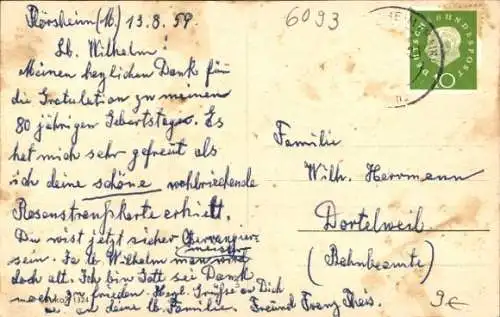 Flörsheim (M) 13.8.59
6093
DEUTSCHE BUNDESPOST
10
Lb. Wilhelm!
Meinen herzlichen Dank für
die Gretulation zu meinem
80 jährigen Gebertstage. Es
het mich sehr gefreut als
ich deine schöne wohlriechende
Rosenstreußkarte erhielt.
Du wist jetzt sicher
sein. Ja lb Wilhelm man wird
doch alt. Ich bin Gott sei Dank
noch zufrieden. Herzl. Grüße an Dich
u. an deine lb. Familie. Freund Franz Theis.
Familie
Wilh. Herrmann
Dortelweil
(Behnbeamte)
9e